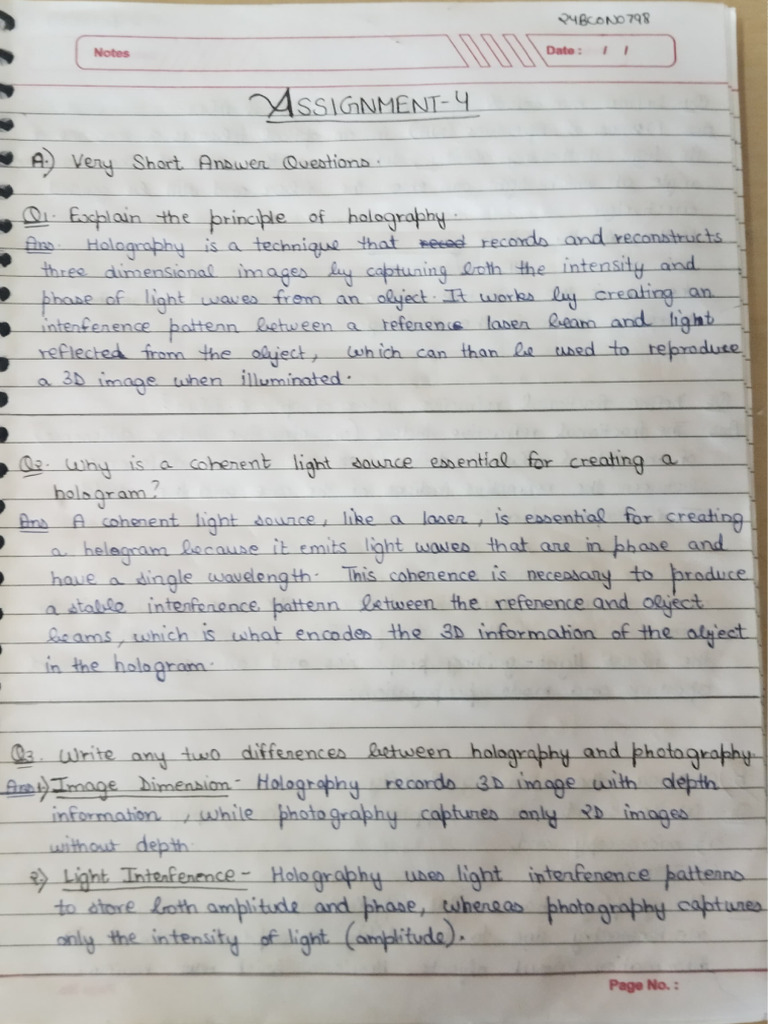 24BCON0798
Notes
Date : / /
ASSIGNMENT-4
A.) Very Short Answer Questions.
Q1. Explain the principle of holography.
Ans. Holography is a technique that records and reconstructs
three dimensional images by capturing both the intensity and
phase of light waves from an object. It works by creating an
interference pattern between a reference laser beam and light
reflected from the object, which can than be used to reproduce
a 3D image when illuminated.
Q2. Why is a coherent light source essential for creating a
hologram?
Ans A coherent light source, like a laser, is essential for creating
a helogram because it emits light waves that are in phase and
have a single wavelength. This coherence is necessary to produce
a stable interference pattern between the reference and object
beams, which is what encodes the 3D information of the object
in the hologram.
Q3. Write any two differences between holography and photography.
Ans 1) Image Dimension - Holography records 3D image with depth
information, while photography captures only 2D images
without depth.
2) Light Interference - Holography uses light interference patterns
to store both amplitude and phase, whereas photography captures
only the intensity of light (amplitude).
Page No. :